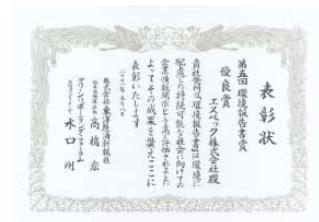 表彰状
第五回 環境報告書賞
優良賞
エスペック株式会社殿
貴社発行の環境報告書は環境に
配慮した持続可能な社会に向けての
企業情報開示として高く評価されました
よってその成果を讃えここに
表彰いたします
株式会社東洋経済新報社
高橋宏
グリーンリポーティング・フォーラム
水口剛